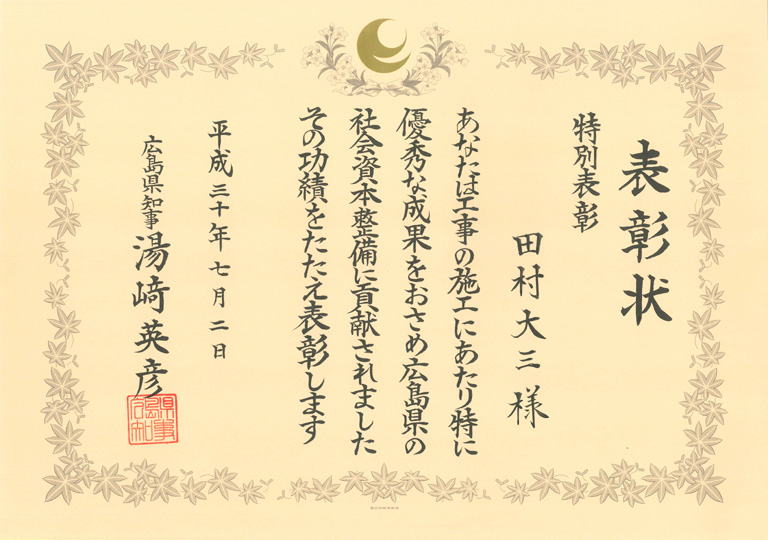 表彰状
特別表彰
田村大三様
あなたは工事の施工にあたり特に
優秀な成果をおさめ広島県の
社会資本整備に貢献されました
その功績をたたえ表彰します
平成三十年七月二日
広島県知事湯﨑英彦